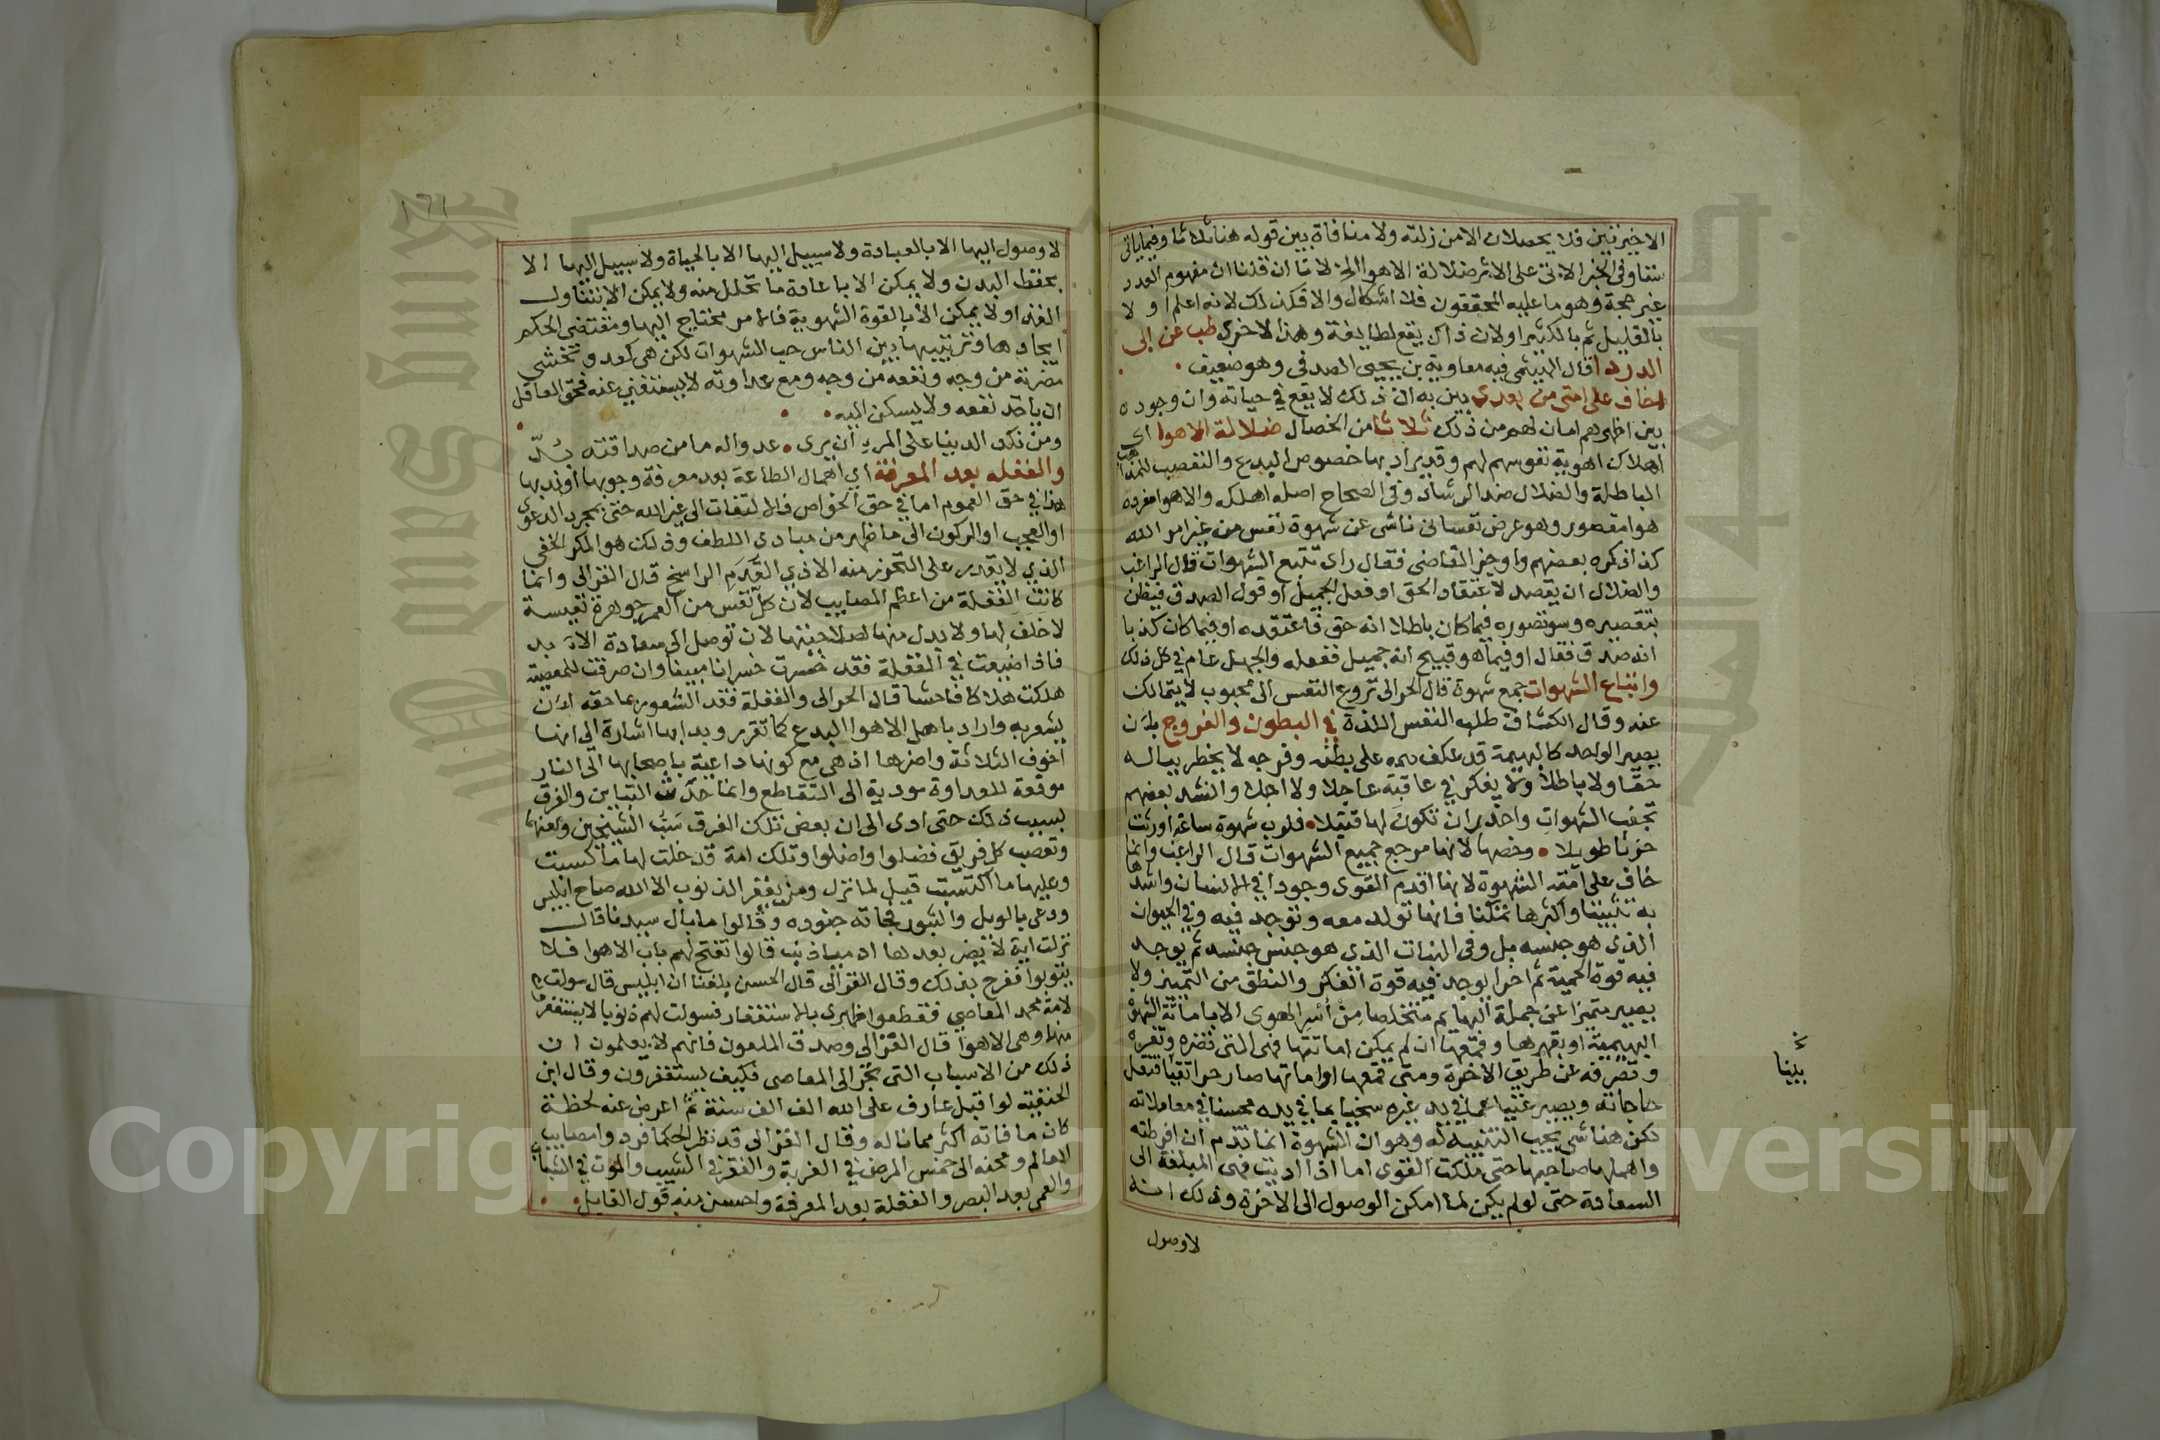 الاخيرتين فلا يحصلان الا من زلته ولا منافاة بين قوله هنا ثلاثا وفيما ياتي
ستا وفي الخبر الاتي على الاثر ضلالة الاهوا الخ لانا ان قلنا ان مفهوم العدد
غير حجة وهو ما عليه المحققون فلا اشكال والا فكذلك لانه اعلم اولا
بالقليل ثم بالكثير او لان ذاك يقع لطايفة وهذا لاخرى طب عن ابي
الدردا قال الهيثمي فيه معاوية بن يحيى الصدفي وهو ضعيف
اخاف على امتي من بعدي بين به ان ذلك لا يقع في حياته وان وجوده
بين اظهرهم امان لهم من ذلك ثلاثا من الخصال ضلالة الاهوا اي
اهلاك اهوية نفوسهم لهم وقد يراد بها خصوص البدع والتعصب للمذاهب
الباطلة والضلال ضد الرشاد وفي الصحاح اضله اهلكه والاهوا مفرده
هوا مقصور وهو عرض نفساني ناشى عن شهوة نفس من غير امر الله
كذا ذكره بعضهم واوجز القاضي فقال راى تتبع الشهوات قال الراغب
والضلال ان يقصد لاعتقاد الحق او فعل الجميل او قول الصدق فيظن
بتقصيره وسوتصوره فيما كان باطلا انه حق فاعتقده او فيما كان كذبا
انه صدق فقال او فيما هو قبيح انه جميل ففعله والجهل عام في كل ذلك
واتباع الشهوات جمع شهوة قال الحرالى نزوع النفس الى محبوب لا يتمالك
عنه وقال الكشاف طلب النفس اللذة في البطون والفروج بان
يصير الواحد كالبهيمة قد عكف همه على بطنه وفرجه لا يخطر بباله
حقا ولا باطلا ولا يفكر في عاقبة عاجلا ولا اجلا وانشد بعضهم
تجنب الشهوات واحذر ان تكون لها قتيلا فلرب شهوة ساعة اورثت
حزنا طويلا وخصها لانها مرجع جميع الشهوات قال الراغب وانما
خاف على امته الشهوة لانها اقدم القوى وجودا في الانسان واشدها
به تشبثا واكثرها تمكنا فانها تولد معه وتوجد فيه وفي الحيوان
الذي هو جنسه بل وفي النبات الذي هو جنس جنسه ثم يوجد
فيه قوة الحمية ثم اخرا يوجد فيه قوة الفكر والنطق من التميز ولا
يصير متميزا عن جملة البهايم متخلصا من اسر الهوى الا باماتة الشهوة
البهيمية او بقهرها وقمعها ان لم يمكن اماتتها فهى التى تضره وتغره
وتصرفه عن طريق الاخرة ومتى قمعها او اماتها صار حرا تقيا فتقل
حاجاته ويصير غنيا عما في يد غيره سخيا بما في يده محسنا في معاملاته
لكن هنا شي يجب التنبيه له وهو ان الشهوة انما تذم ان افرطته
واهملها صاحبها حتى ملكت القوى اما اذا ادبت فهى المبلغة الى
السعادة حتى لو لم يكن لما امكن الوصول الى الاخرة وذلك انه
لا وصول
لا وصول اليها الا بالعبادة ولا سبيل اليها الا بالحياة ولا سبيل اليها الا
بحفظ البدن ولا يمكن الا باعادة ما تحلل منه ولا يمكن الا بتناول
الغذا ولا يمكن الا بالقوة الشهوية فالامر محتاج اليها ومقتضى الحكم
ايجادها وتزيينها زين للناس حب الشهوات لكن هى كعدو تخشى
مضرته من وجه ونفعه من وجه ومع عداوته لا يستغنى عنه فحق العاقل
ان ياخذ نفعه ولا يسكن اليه
ومن نكد الدنيا على المرء ان يرى عدوا له ما من صداقته بد
والغفلة بعد المعرفة اي اهمال الطاعة بعد معرفة وجوبها او ندبها
هذا في حق العموم اما في حق الخواص فالالتفات الى غير الله حتى بمجرد الدعوى
او العجب او الركون الى ما ظهر من مبادى اللطف وذلك هو المكر الخفي
الذي لا يقدر على التحوز منه الا ذي القدم الراسخ قال الغزالى وانما
كانت الغفلة من اعظم المصايب لان كل نفس من العمر جوهرة نفيسة
لا خلف لها ولا بدل منها لصلاحيتها لان توصل الى سعادة الابد
فاذا ضيعت في الغفلة فقد خسرت خسرانا مبينا وان صرفت للمعصية
هلكت هلاكا فاحشا قال الحرالى والغفلة فقد الشعور بما حقه ان
يشعر به واراد باهل الاهوا البدع كما تقرر وبدا بها اشارة الى انها
اخوف الثلاثة واضرها اذ هى مع كونها داعية باصحابها الى النار
موقعة للعداوة مودية الى التقاطع وانما حدث التباين والفرق
بسبب ذلك حتى ادى الى ان بعض تلك الفرق سب الشيخين ولعنها
وتعصب كل فريق فضلوا واضلوا وتلك امة قد خلت لها ما كسبت
وعليها ما اكتسبت قيل لما نزل ومن يغفر الذنوب الا الله صاح ابليس
ودعى بالويل والثبور فجاته جنوده وقالوا ما بال سيدنا قال
نزلت اية لا يضر بعدها ادميا ذنب قالوا نفتح لهم باب الاهوا فلا
يتوبوا ففرح بذلك وقال الغزالى قال الحسن بلغنا ان ابليس قال سولت
لامة محمد المعاصي فقطعوا ظهرى بالاستغفار فسولت لهم ذنوبا لا يستغفر
منها وهى الاهوا قال الغزالى وصدق الملعون فانهم لا يعلمون ان
ذلك من الاسباب التى تجر الى المعاصى فكيف يستغفرون وقال ابن
الحنفية لو اقبل عارف على الله الف الف سنة ثم اعرض عنه لحظة
كان ما فاته اكثر مما ناله وقال الغزالى قد نظر الحكما فردوا مصايب
العالم ومحنه الى خمس المرض في الغربة والفقر في الشيب والموت في الشباب
والعمى بعد البصر والغفلة بعد المعرفة واحسن منه قول القايل
Copyright © King Saud University